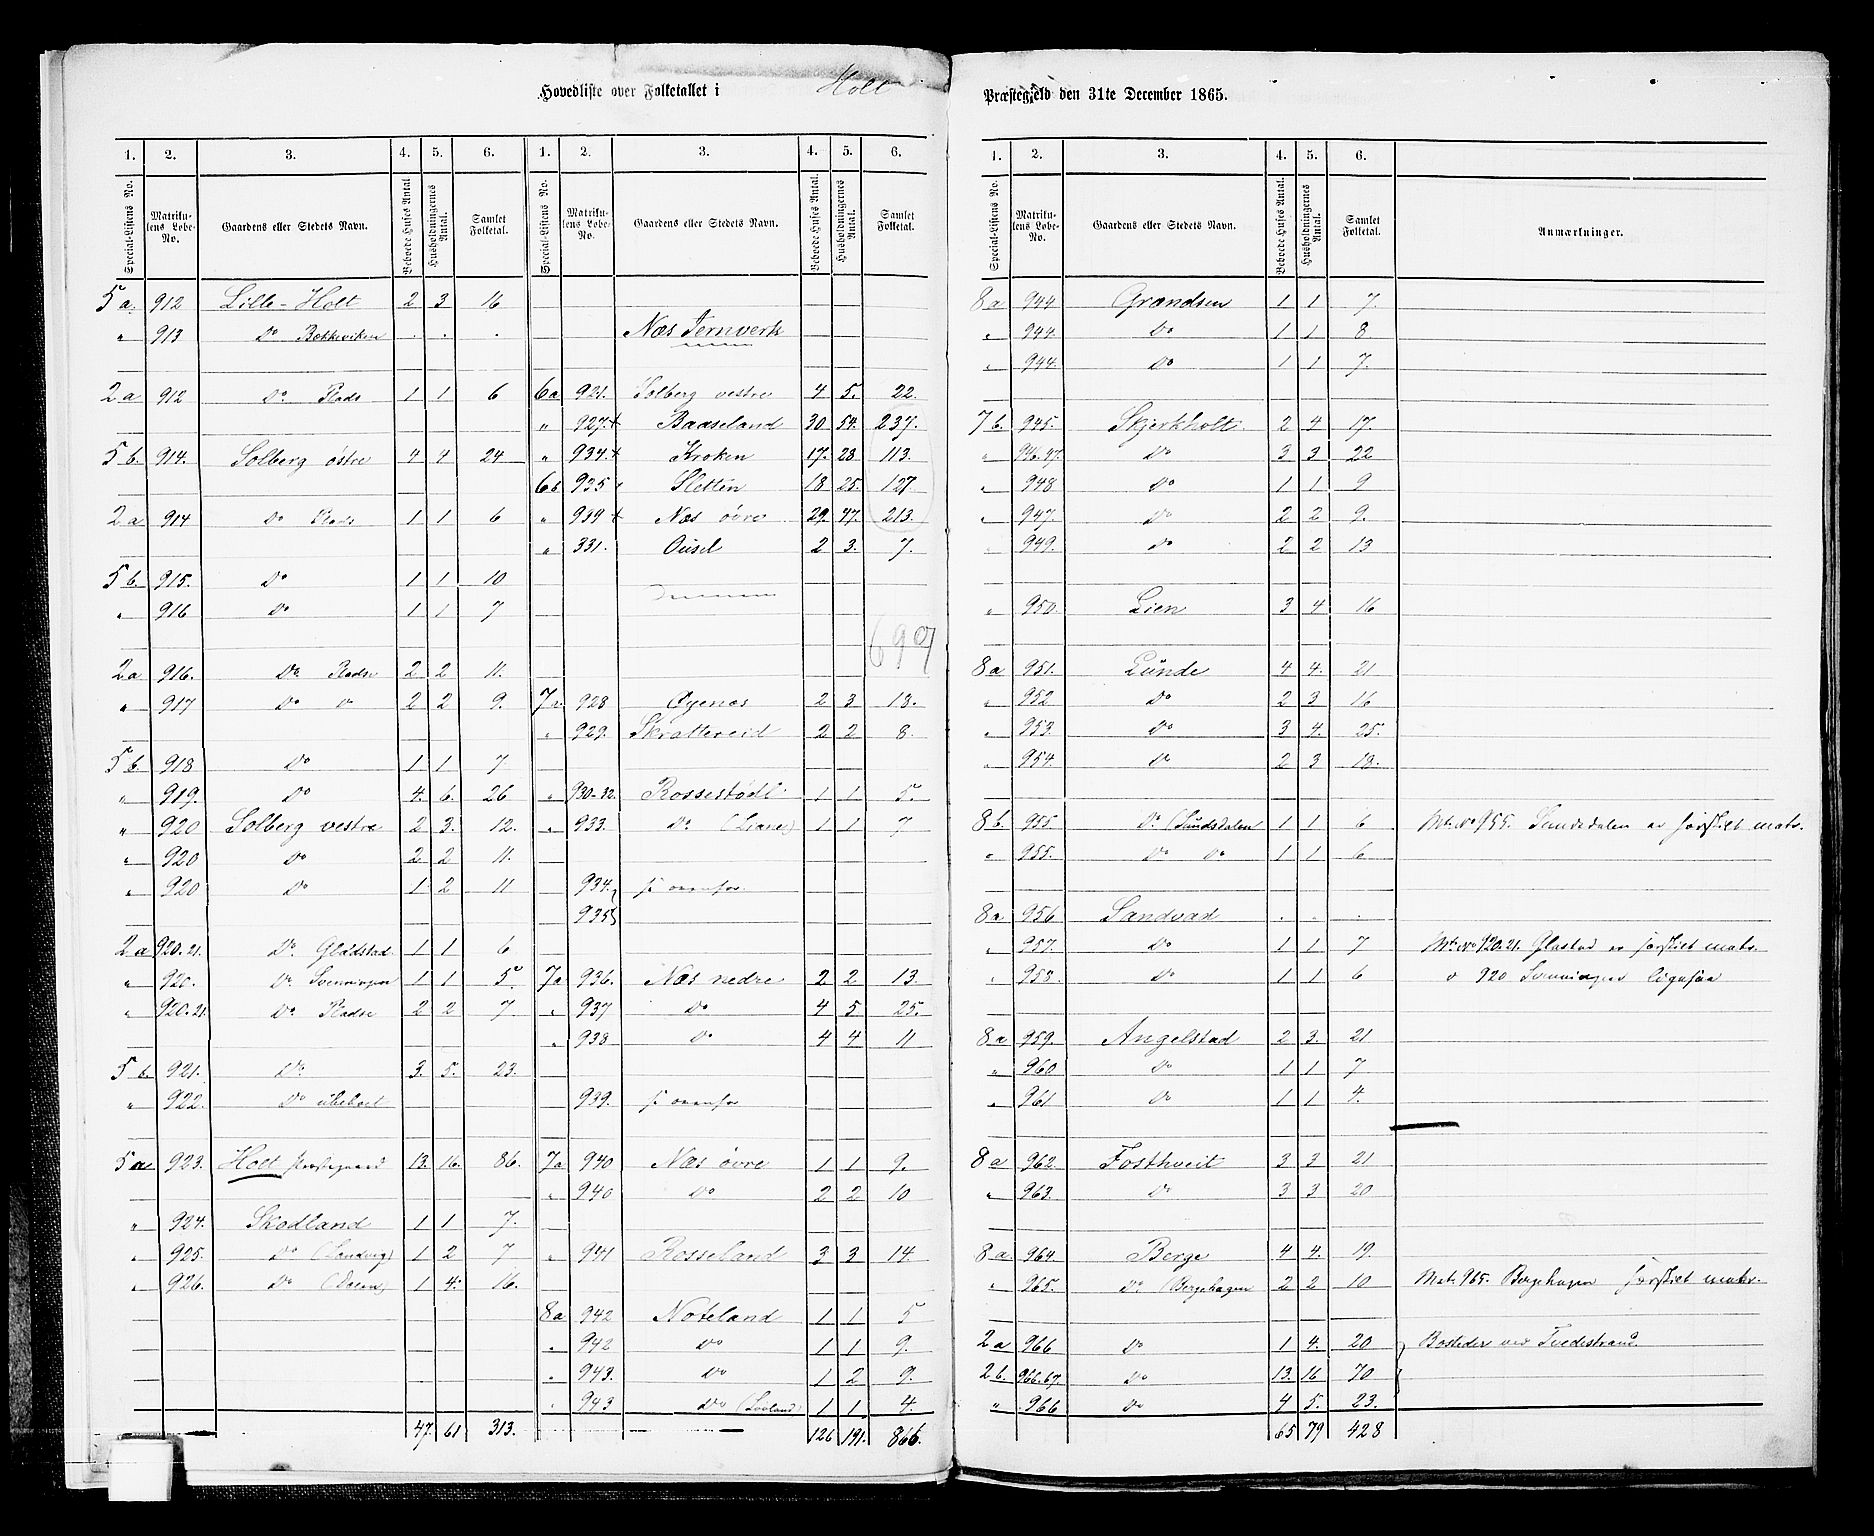 Hovedliste over Folketallet i Holt Præstegjeld den 31te December 1865.
1. 2. 3. 4. 5. 6. 1. 2. 3. 4. 5. 6.
Special-Listens No. Matrikulens Løbe-No. Gaardens eller Stedets Navn. Beboede Huses Antal. Husholdningernes Antal. Samlet Folketal. Special-Listens No. Matrikulens Løbe-No. Gaardens eller Stedets Navn. Beboede Huses Antal. Husholdningernes Antal. Samlet Folketal.
5a. 912 Lille-Holt 2 3 16
" 913 Do Bekkeviken . . . Næs Jernverk
2a 912 Do Plads 1 1 6 6a 921. Solberg vestre 4 5. 22.
" 927.+ Baaseland 30. 54. 237.
5b. 914. Solberg østre 4 4 24 " 934.+ Kroken 17. 28 113.
6b 935 Sletten 18 25. 127.
2a 914 Do Plads 1 1 6 " 939+ Næs øvre 29. 47. 213.
" 331. Ousel 2 3. 7.
5b. 915. Do 1 1 10
" 916 Do 1 1 7
697
2a 916. Do Pladse 2 2 11.
" 917 Do Do 2 2 9. 7a 928 Øyenæs 2 3 18.
" 929. Skrattereid 2 2 8.
5b 918 Do 1 1 7.
" 919. Do 4. 6. 26 " 930-32. Rossestødl 1 1 5.
" 920 Solberg vestre 2 3. 12. " 933. Do (Liane) 1 1 7
" 920 Do 2 2 11.
" 920 Do 1 2 11 934. se ovenfor
935
2a 920.21. Do Gladstad 1 1 6
" 920. Do Svenningen 1 1 5 7a 936. Næs nedre 2 2 13.
" 920.21. Do Pladse 2 2 7 " 937 Do 4 5 25.
" 938 Do 4 4 11
5b. 921. Do 3. 5. 23.
" 922. Do ubeboet 939. se ovenfor
5a 923. Holt Præstegaard 13. 16. 86. 7a 940 Næs øvre 1 1 9.
" 940 Do 2 2 10
" 924. Skodland 1 1 7.
" 925. Do (Sandvig) 1 2 7 " 941 Rosseland 3 3 14
" 926. Do 1 4. 16.
8a 942 Noteland 1 1 5
" 942 Do 1 1 9.
" 943. Do 1 2 9.
" 943 Do (Lovland) 1 1 4.
47. 61 313. 126 191. 866.
1. 2. 3. 4. 5. 6.
Special-Listens No. Matrikulens Løbe-No. Gaardens eller Stedets Navn. Beboede Huses Antal. Husholdningernes Antal. Samlet Folketal. Anmærkninger.
8a 944 Grændsen 1 1 7.
" 944. Do 1 1 8
" 944. Do 1 1 7.
7b. 945. Skjerkholt 2 4 17.
" 946.97. Do 3 3 22
" 948 Do 1 1 9
" 947. Do 2 2 9.
" 949. Do 2 2 13
" 950. Lien 3 4 16
8a 951. Lunde 4 4. 21
" 952 Do 2 3 16
" 953. Do 3 4. 25.
" 954. Do 2 3 18.
8b. 955. Do (Sundsdalen 1 1 6 Mtr. No 955. Sundsdalen er særskilt matr.
" 955. Do Do 1 1 6
8a 956 Sandvad . . .
" 957. Do 1 1 7 Mtr. No 920.21. Glastad er særskilt matr.
" 958. Do 1 1 6 " 920 Svenningen ligesaa
8a 959. Angelstad 2 3. 21
" 960 Do 1 1 7
" 961 Do 1 1 4.
8a 962. Fosthveit 3 3 21
" 963. Do 3 3 20
8a. 964. Berge 4 4. 19.
" 965. Do (Bergehagen 2 2 10 Matr. 965. Bergehagen særskilt matr.
2a 966 Do 1 4. 20 Bosteder ved Tvedestrand.
2b. 966.67. Do 13. 16 70
" 966 Do 4 5. 23.
65 79 428